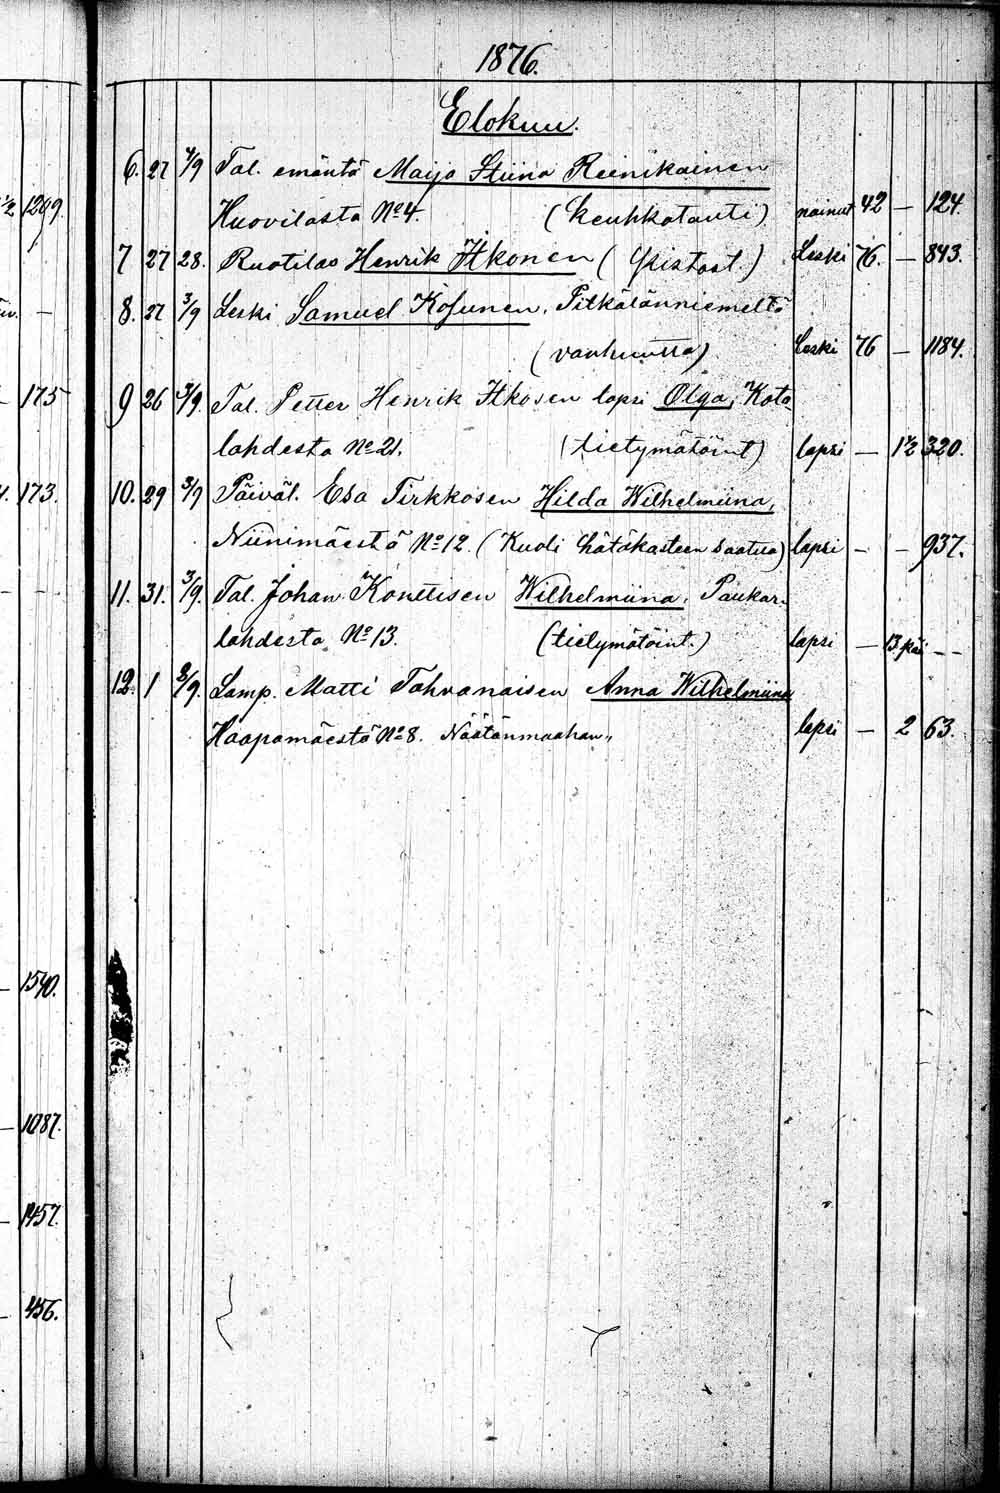 1876.
Elokuu.
6. 27 4/9 Tal. emäntä Maija Stiina Reinikainen
1209. Huovilasta No 4. (keuhkotauti) nainut 42 — 124.
7 27 28. Ruotilas Henrik Itkonen (Pistost.) Leski 76. — 843.
— 8. 27 3/9 Leski Samuel Kosunen, Pitkälänniemeltä
(vanhuutta) Leski 76 — 1184.
— 175 9 26 3/9. Tal. Petter Henrik Itkosen lapsi Olga, Kota-
lahdesta No 21. (tietymätöint) lapsi — 1 1/2 320.
173. 10. 29 3/9 Päiväl. Esa Tirkkosen Hilda Wilhelmiina,
Niinimäestä No 12. (Kuoli hätäkasteen saatua) lapsi — — 937.
— — 11. 31. 3/9. Tal. Johan Konttisen Wilhelmiina, Paukar-
lahdesta No 13. (tietymätöint.) lapsi — 13. päi — —
12. 1 3/9. Lamp. Matti Tahvanaisen Anna Wilhelmiina
Haapamäestä No 8. Näätänmaahan„ lapsi — 2 63.
— 1540.
— 1087.
— 1457.
— 456.